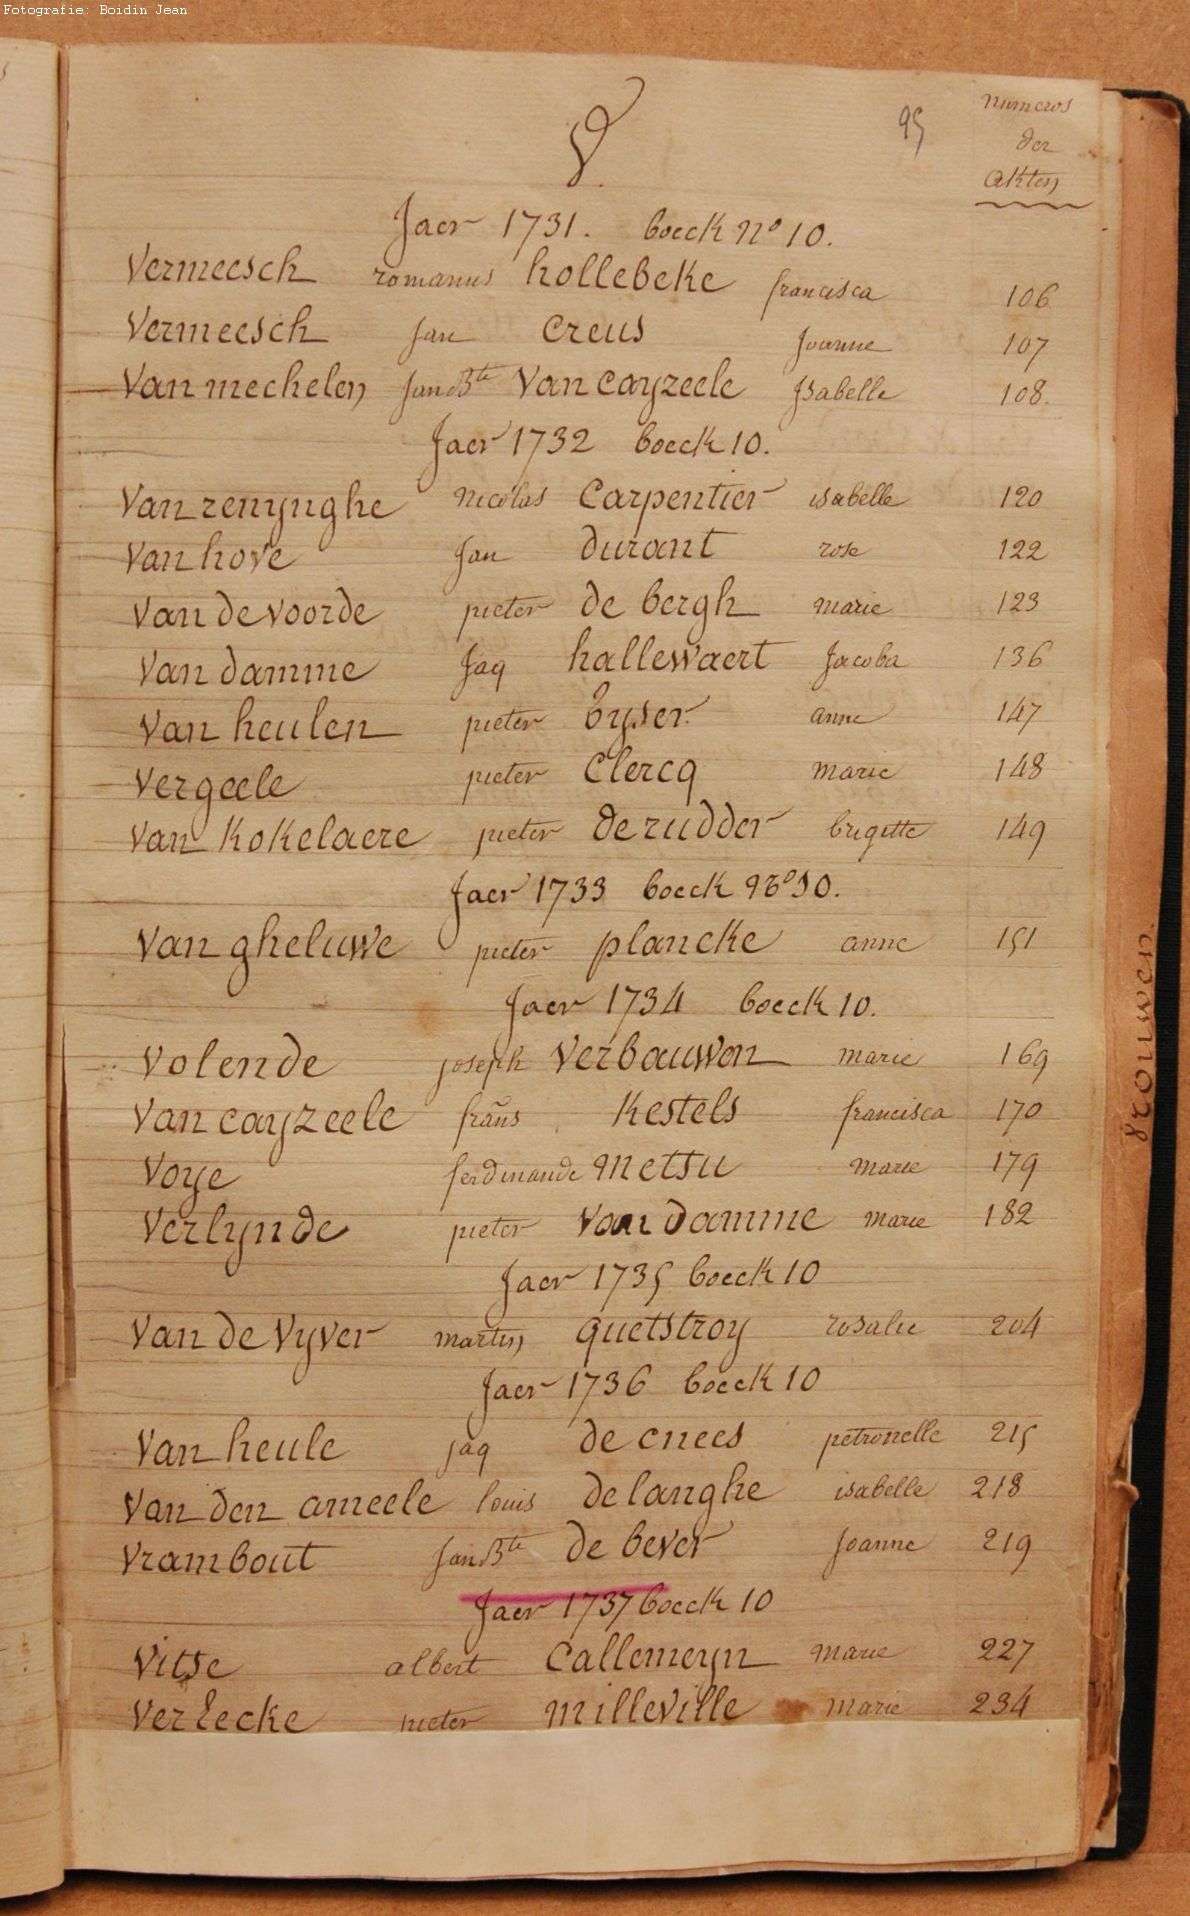 Fotografie: Boidin Jean
V.
95
numeros
der
akten
Jaer 1731. boeck N° 10.
Vermeesch romanus hollebeke francisca 106
Vermeesch Jan Creus Joanne 107
Van mechelen Jan Bte Van cayzeele Isabelle 108.
Jaer 1732 boeck 10.
Van renynghe nicolas Carpentier isabelle 120
Van hove Jan durant rose 122
Van de voorde pieter de bergh marie 123
Van damme Jaq hallewaert Jacoba 136
Van heulen pieter Tyser anne 147
Vergeele pieter Clercq marie 148
Van Kokelaere pieter de rudder brigitte 149
Jaer 1733 boeck N° 10.
Van gheluwe pieter plancke anne 151
Jaer 1734 boeck 10.
Volende joseph Verbauwen marie 169
Van cayzeele frans Kestels francisca 170
Voye ferdinande Metsu marie 179
Verlynde pieter Van damme marie 182
Jaer 1735 boeck 10
Van de Vyver martin quetstroy rosalie 204
Jaer 1736 boeck 10
Van heule jaq de cnees petronelle 215
Van den ameele louis de langhe isabelle 218
Vrambout Jan Bte de bever Joanne 219
Jaer 1737 boeck 10
Vitse albert Callemeyn marie 227
pieter milleville marie 234
trouwen